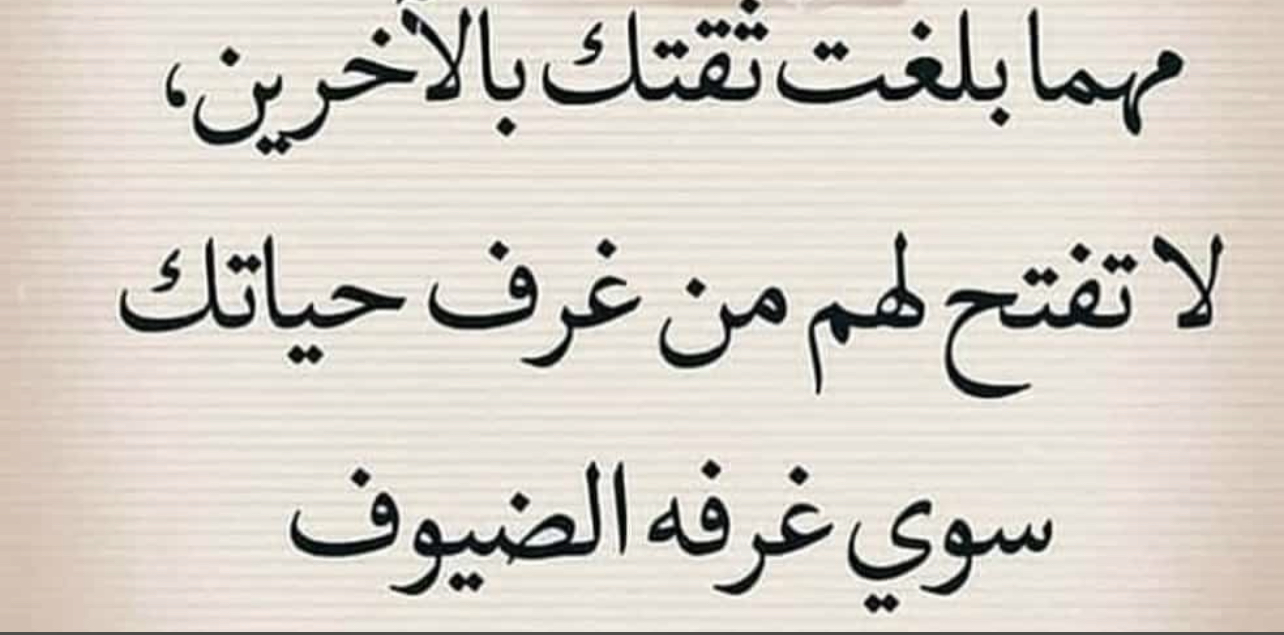 مهما بلغت ثقتك بالآخرين،
لا تفتح لهم من غرف حياتك
سوي غرفه الضيوف